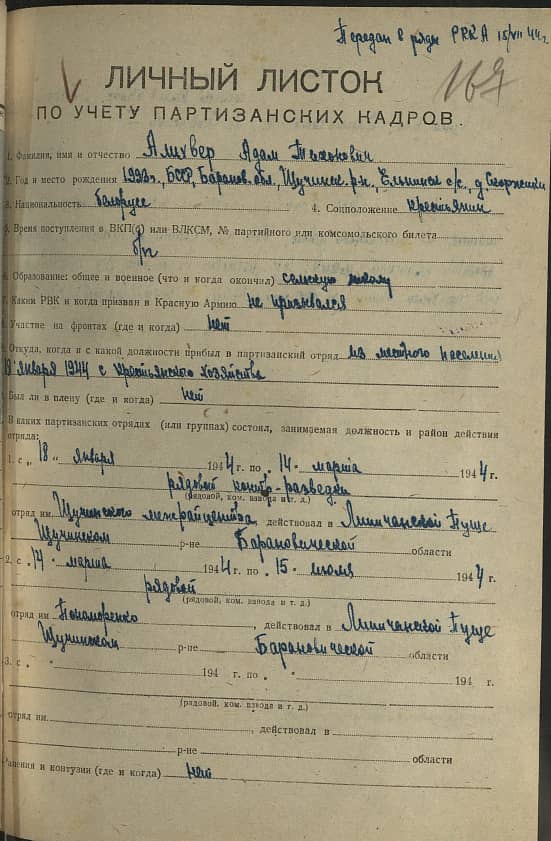 Передан в ряды РККА 15/VII 44 г.
ЛИЧНЫЙ ЛИСТОК
167
ПО УЧЕТУ ПАРТИЗАНСКИХ КАДРОВ.
1. Фамилия, имя и отчество Алихвер Адам
2. Год и место рождения 1923 г., БССР, Баранов. обл., Щучинск. р-н, с/с., д.
3. Национальность белорусс 4. Соцположение крестьянин
5. Время поступления в ВКП(б) или ВЛКСМ, № партийного или комсомольского билета
б/п
6. Образование: общее и военное (что и когда окончил) сельскую школу
7. Каким РВК и когда призван в Красную Армию не призывался
8. Участие на фронтах (где и когда) нет
9. Откуда, когда и с какой должности прибыл в партизанский отряд из местного населения
18 января 1944 с крестьянского хозяйства
Был ли в плену (где и когда) нет
В каких партизанских отрядах (или группах) состоял, занимаемая должность и район действия
отряда:
1. с „18" января 1944 г. по „14" марта 1944 г.
рядовой контр-разведки
(рядовой, ком. взвода и т. д.)
отряд им. Щучинского межрайцентра, действовал в Липичанской Пуще
Щучинском р-не Барановической области
2. с „14" марта 1944 г. по „15" июля 1944 г.
рядовой
(рядовой, ком. взвода и т. д.)
отряд им Пономаренко, действовал в Липичанской Пуще
Щучинском р-не Барановической области
3. с „ " 194 г. по „ " 194 г.
(рядовой, ком. взвода и т. д.)
отряд им. , действовал в
р-не области
Ранения и контузии (где и когда) нет